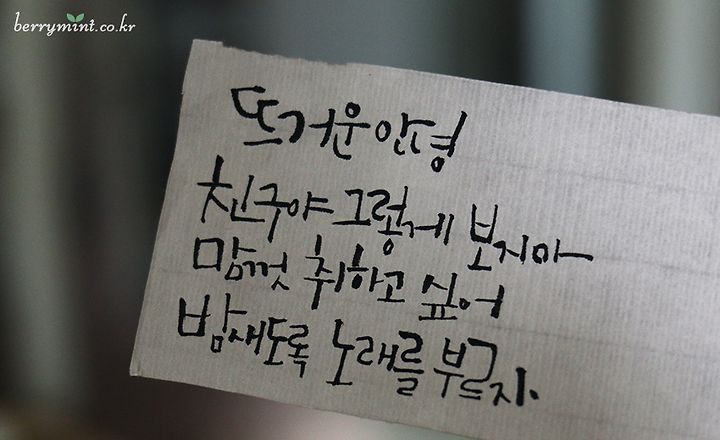 berrymint.co.kr
뜨거운안녕
친구야 그렇게 보지마
맘껏 취하고 싶어
밤새도록 노래를 부르자.